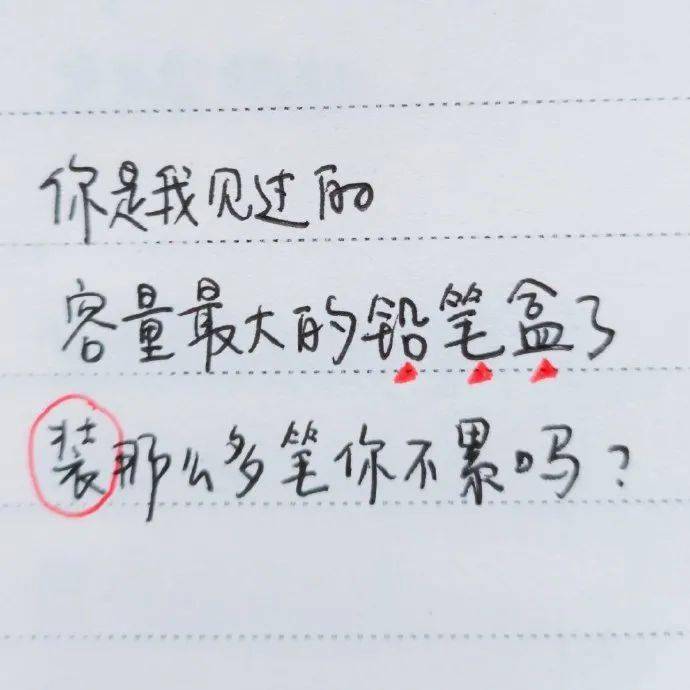 你是我见过的
容量最大的铅笔盒了
装那么多笔你不累吗?